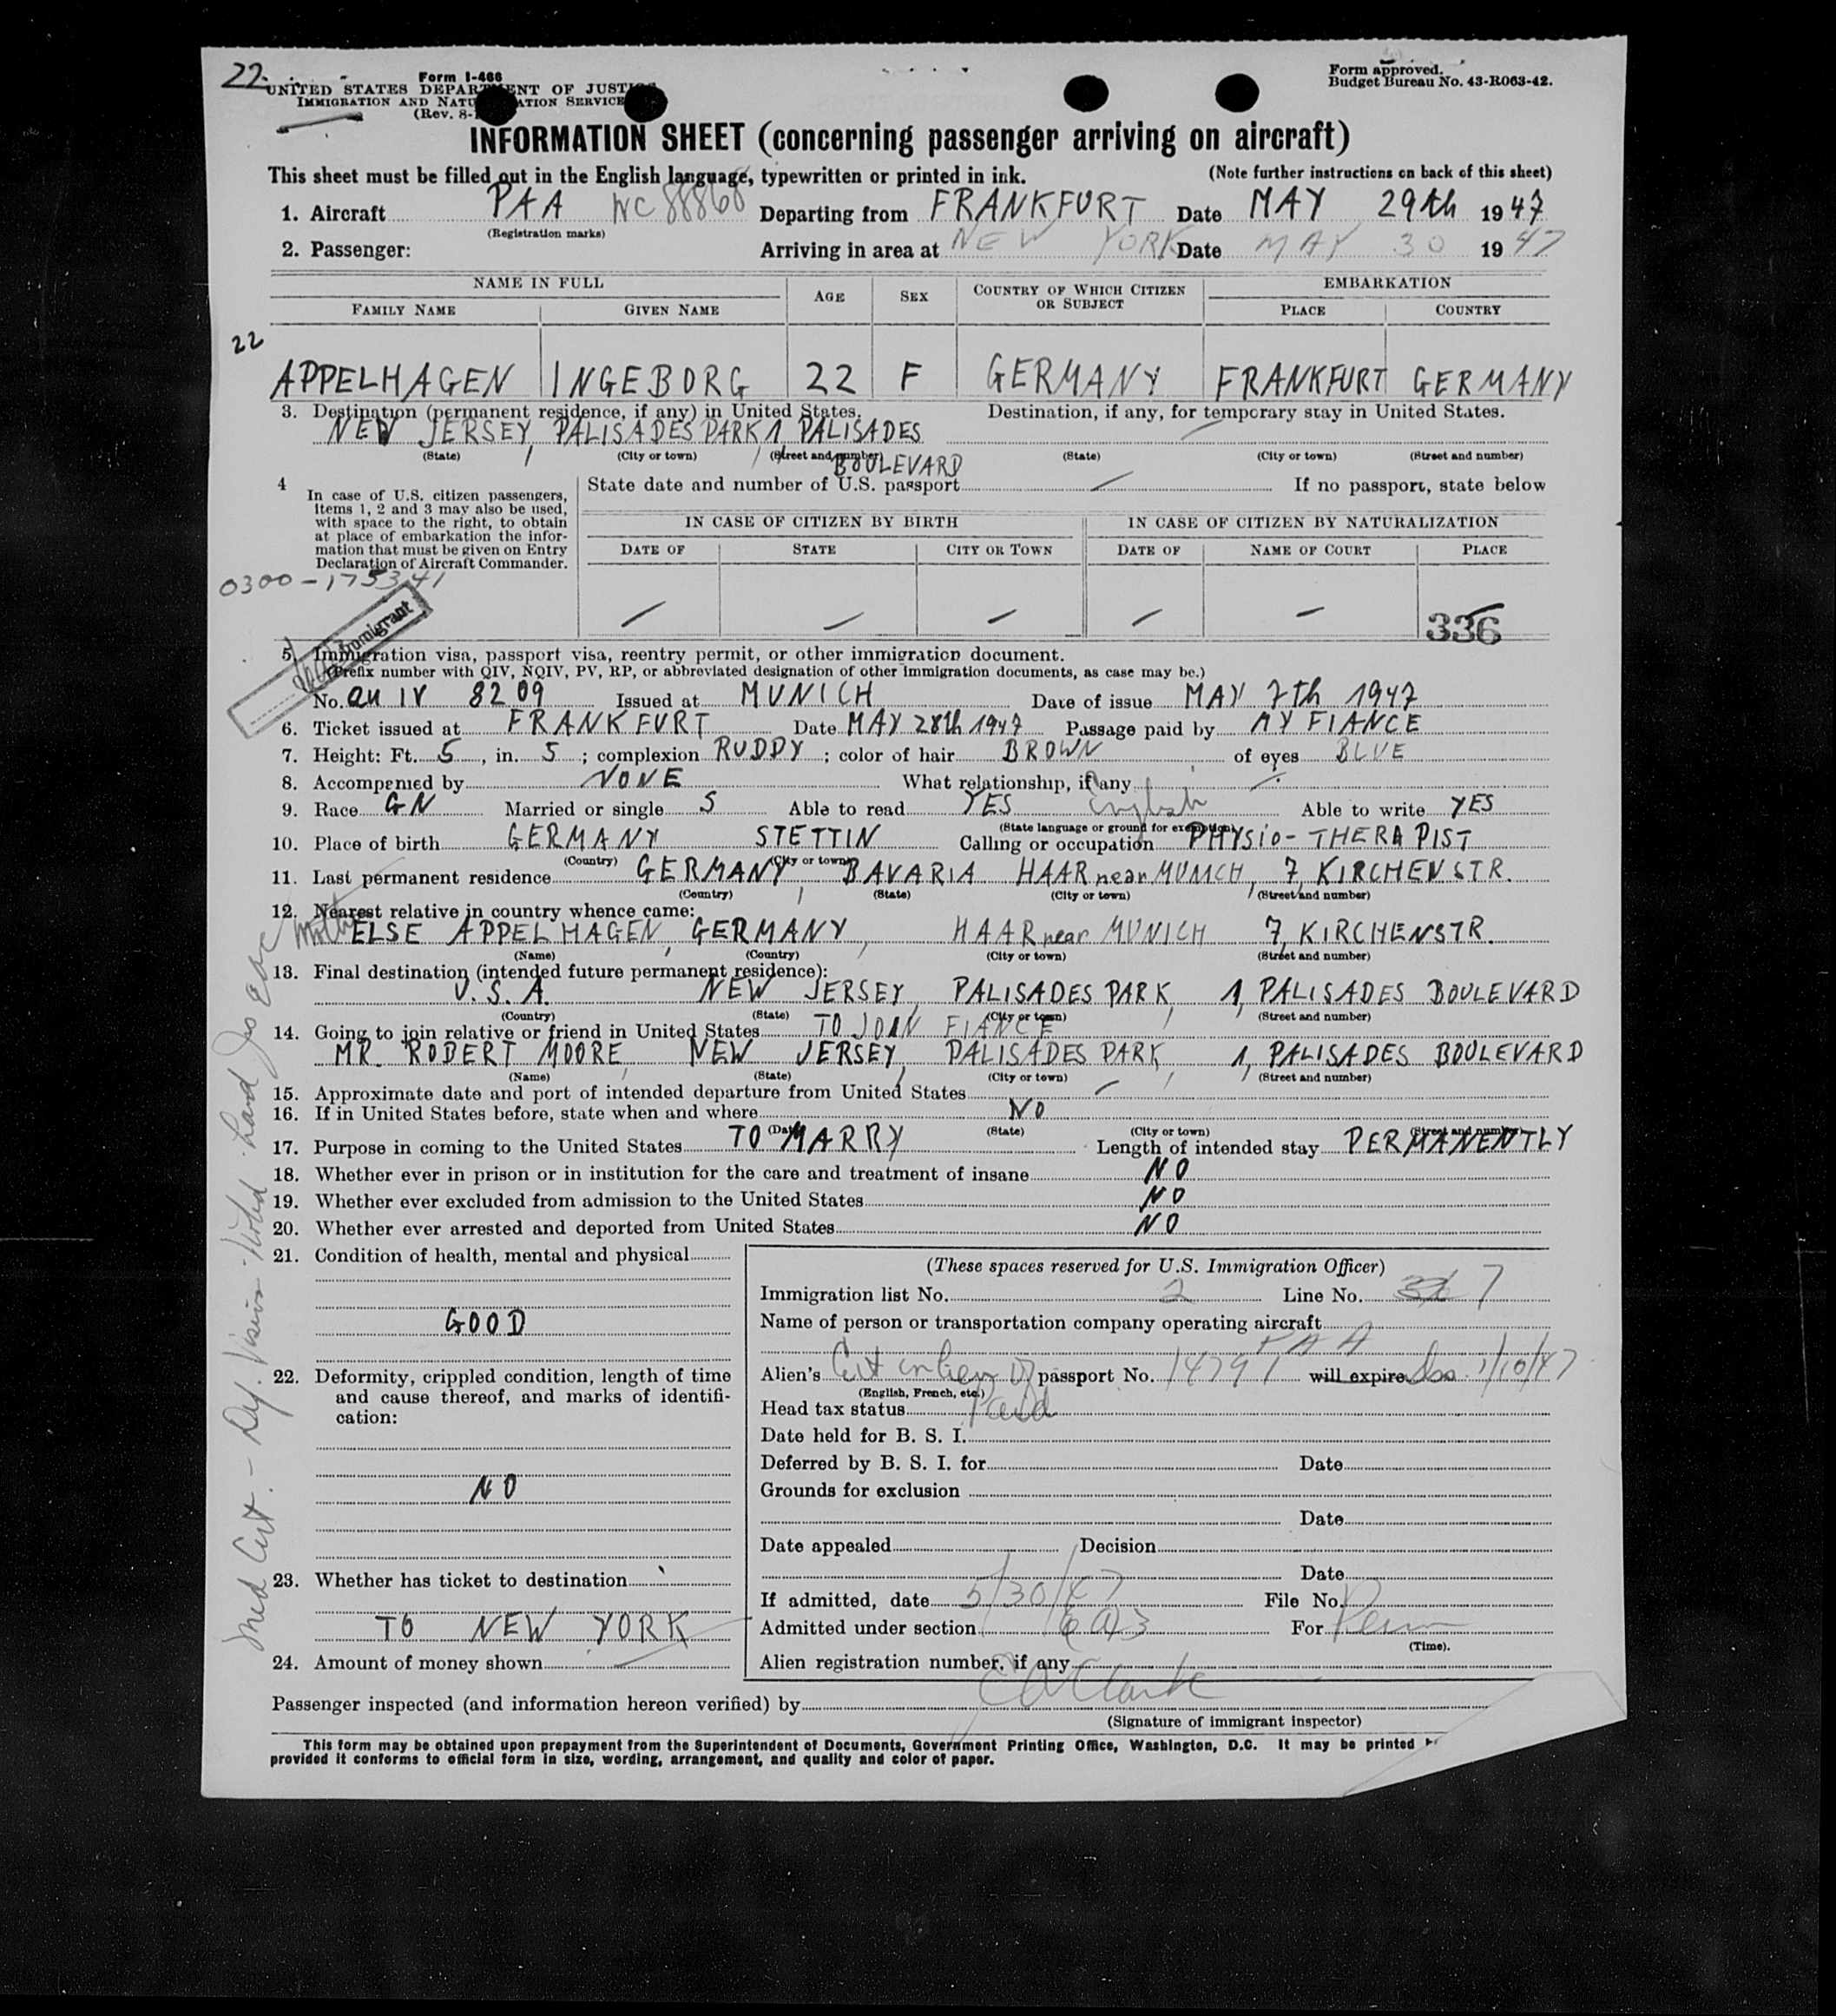 22.
Form I-466
UNITED STATES DEPARTMENT OF JUSTICE
IMMIGRATION AND NATURALIZATION SERVICE
(Rev. 8-
Form approved.
Budget Bureau No. 43-R063-42.
INFORMATION SHEET (concerning passenger arriving on aircraft)
This sheet must be filled out in the English language, typewritten or printed in ink. (Note further instructions on back of this sheet)
1. Aircraft PAA NC 88868 Departing from FRANKFURT Date MAY 29th 1947
(Registration marks)
2. Passenger: Arriving in area at NEW YORK Date MAY 30 1947
NAME IN FULL AGE SEX COUNTRY OF WHICH CITIZEN OR SUBJECT EMBARKATION
FAMILY NAME GIVEN NAME PLACE COUNTRY
22
APPELHAGEN INGEBORG 22 F GERMANY FRANKFURT GERMANY
3. Destination (permanent residence, if any) in United States. Destination, if any, for temporary stay in United States.
NEW JERSEY, PALISADES PARK 1, PALISADES
(State) (City or town) (Street and number) (State) (City or town) (Street and number)
BOULEVARD
4 State date and number of U.S. passport If no passport, state below
In case of U.S. citizen passengers,
items 1, 2 and 3 may also be used,
with space to the right, to obtain
at place of embarkation the infor-
mation that must be given on Entry
Declaration of Aircraft Commander.
IN CASE OF CITIZEN BY BIRTH IN CASE OF CITIZEN BY NATURALIZATION
DATE OF STATE CITY OR TOWN DATE OF NAME OF COURT PLACE
0300-175341
336
Immigrant
5. Immigration visa, passport visa, reentry permit, or other immigration document.
(Prefix number with QIV, NQIV, PV, RP, or abbreviated designation of other immigration documents, as case may be.)
No. QU IV 8209 Issued at MUNICH Date of issue MAY 7th 1947
6. Ticket issued at FRANKFURT Date MAY 28th 1947 Passage paid by MY FIANCE
7. Height: Ft. 5, in. 5; complexion RUDDY; color of hair BROWN of eyes BLUE
8. Accompanied by NONE What relationship, if any
9. Race GN Married or single S Able to read YES English Able to write YES
(State language or ground for exemption)
10. Place of birth GERMANY STETTIN Calling or occupation PHYSIO-THERAPIST
(Country) (City or town)
11. Last permanent residence GERMANY, BAVARIA HAAR near MUNICH, 7, KIRCHENSTR.
(Country) (State) (City or town) (Street and number)
12. Nearest relative in country whence came:
Mother ELSE APPELHAGEN, GERMANY, HAAR near MUNICH 7, KIRCHENSTR.
(Name) (Country) (City or town) (Street and number)
13. Final destination (intended future permanent residence):
U.S.A. NEW JERSEY, PALISADES PARK, 1, PALISADES BOULEVARD
(Country) (State) (City or town) (Street and number)
14. Going to join relative or friend in United States TO JOIN FIANCE
MR. ROBERT MOORE, NEW JERSEY, PALISADES PARK, 1, PALISADES BOULEVARD
(Name) (State) (City or town) (Street and number)
15. Approximate date and port of intended departure from United States
16. If in United States before, state when and where NO
(Date) (State) (City or town) (Street and number)
17. Purpose in coming to the United States TO MARRY Length of intended stay PERMANENTLY
18. Whether ever in prison or in institution for the care and treatment of insane NO
19. Whether ever excluded from admission to the United States NO
20. Whether ever arrested and deported from United States NO
21. Condition of health, mental and physical
GOOD
22. Deformity, crippled condition, length of time
and cause thereof, and marks of identifi-
cation:
NO
23. Whether has ticket to destination
TO NEW YORK
24. Amount of money shown
(These spaces reserved for U.S. Immigration Officer)
Immigration list No. 2 Line No. 7
Name of person or transportation company operating aircraft
PAA
Alien's passport No. 14791 will expire 1/10/47
(English, French, etc.)
Head tax status Paid
Date held for B. S. I.
Deferred by B. S. I. for Date
Grounds for exclusion
Date
Date appealed Decision
Date
If admitted, date 5/30/47 File No.
Admitted under section 6(a)3 For Perm
(Time).
Alien registration number, if any
Passenger inspected (and information hereon verified) by E A Clark
(Signature of immigrant inspector)
This form may be obtained upon prepayment from the Superintendent of Documents, Government Printing Office, Washington, D.C. It may be printed
provided it conforms to official form in size, wording, arrangement, and quality and color of paper.
Med Cert. - Def. Vision